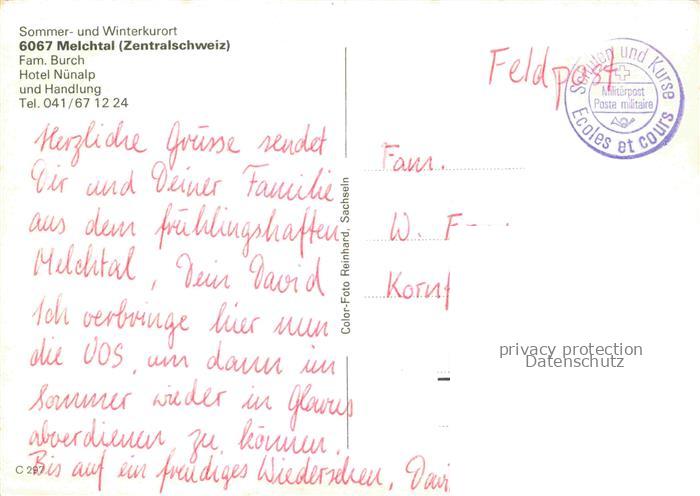 Sommer- und Winterkurort
6067 Melchtal (Zentralschweiz)
Fam. Burch
Hotel Nünalp
und Handlung
Tel. 041/67 12 24
Feldpost
Schulen und Kurse
Militärpost
Poste militaire
Ecoles et cours
Herzliche Grüsse sendet
Dir und Deiner Familie
aus dem frühlingshaften
Melchtal, Dein David
Ich verbringe hier nun
die UOS, um dann im
Sommer wieder in Glarus
abverdienen zu können.
Bis auf ein freudiges Wiedersehen, Davi
C 297
Color-Foto Reinhard, Sachseln
Fam.
W. F
Kornf
privacy protection
Datenschutz